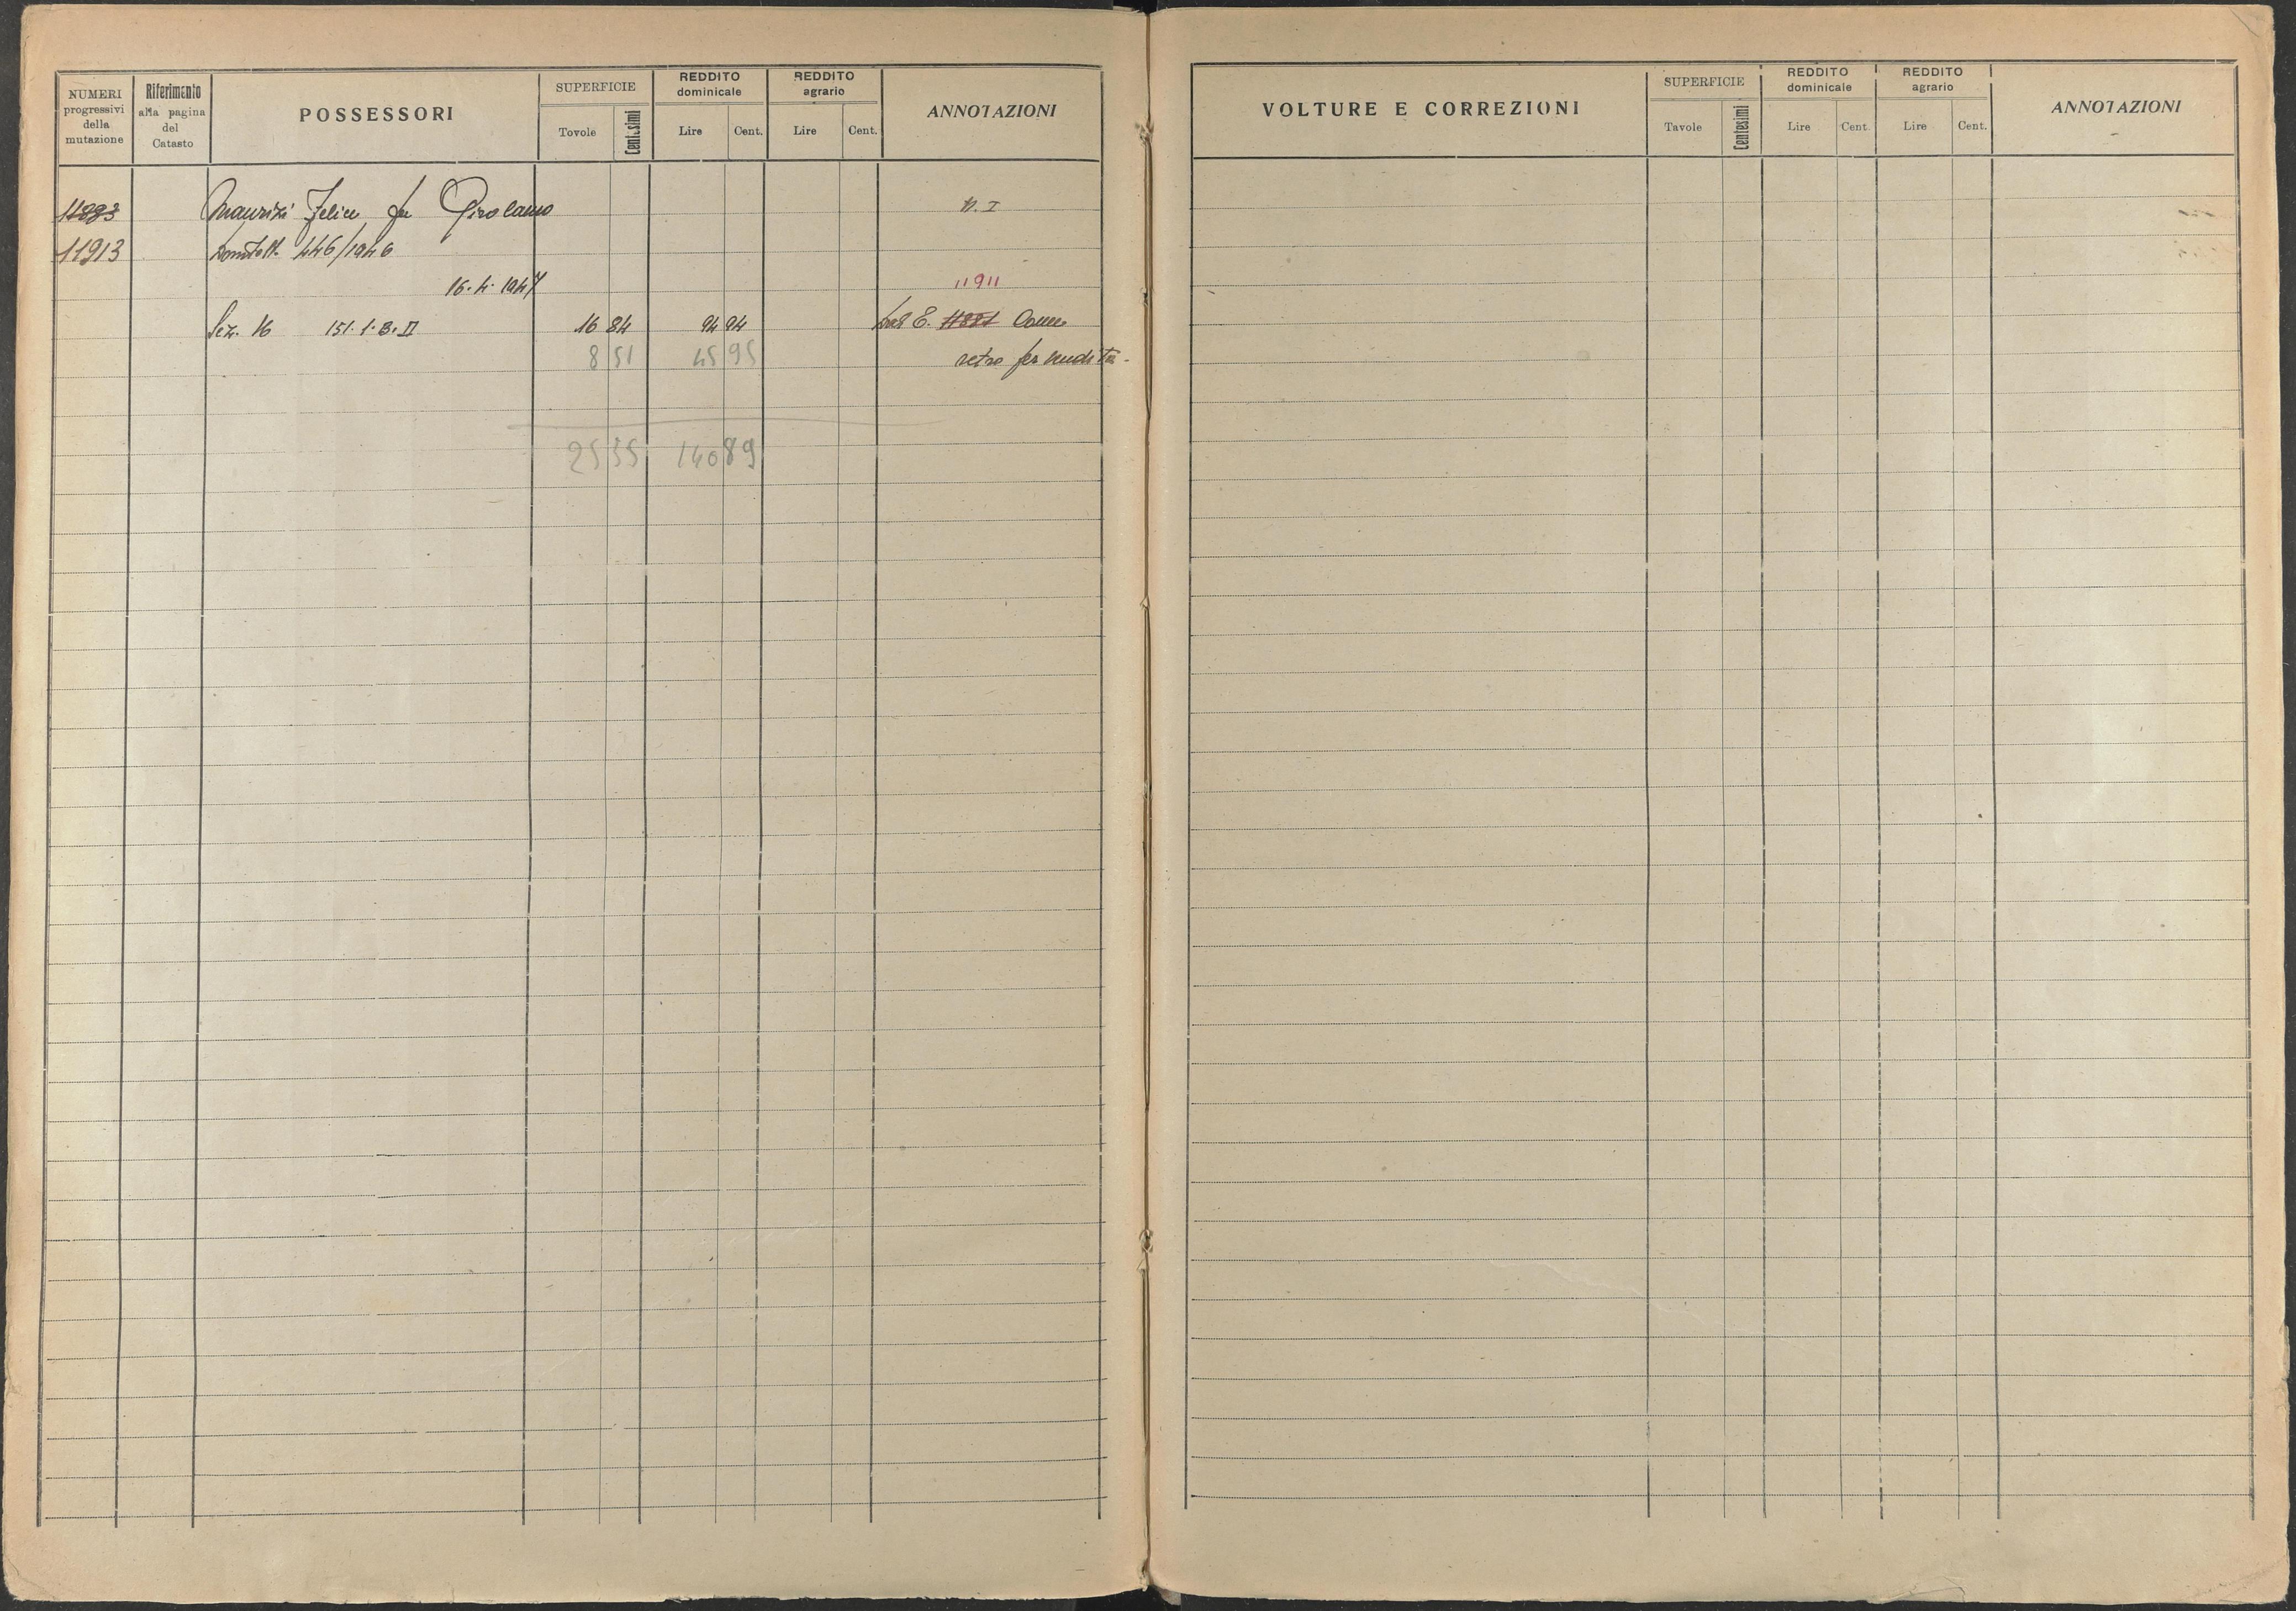 NUMERI progressivi della mutazione
Riferimento alla pagina del Catasto
POSSESSORI
SUPERFICIE
Tovole
Centesimi
REDDITO dominicale
Lire
Cent.
REDDITO agrario
Lire
Cent.
ANNOTAZIONI
11883 Maurizi Felice fu Girolamo N. I
11913 446/1946
16.4.1947 11911
Sez. 16 151.1.B.II 16 84 94 94 Dal E. 11881 Come
8 51 45 95 retro per vendita.
25 35 140 89
VOLTURE E CORREZIONI
SUPERFICIE
Tavole
Centesimi
REDDITO dominicale
Lire
Cent.
REDDITO agrario
Lire
Cent.
ANNOTAZIONI